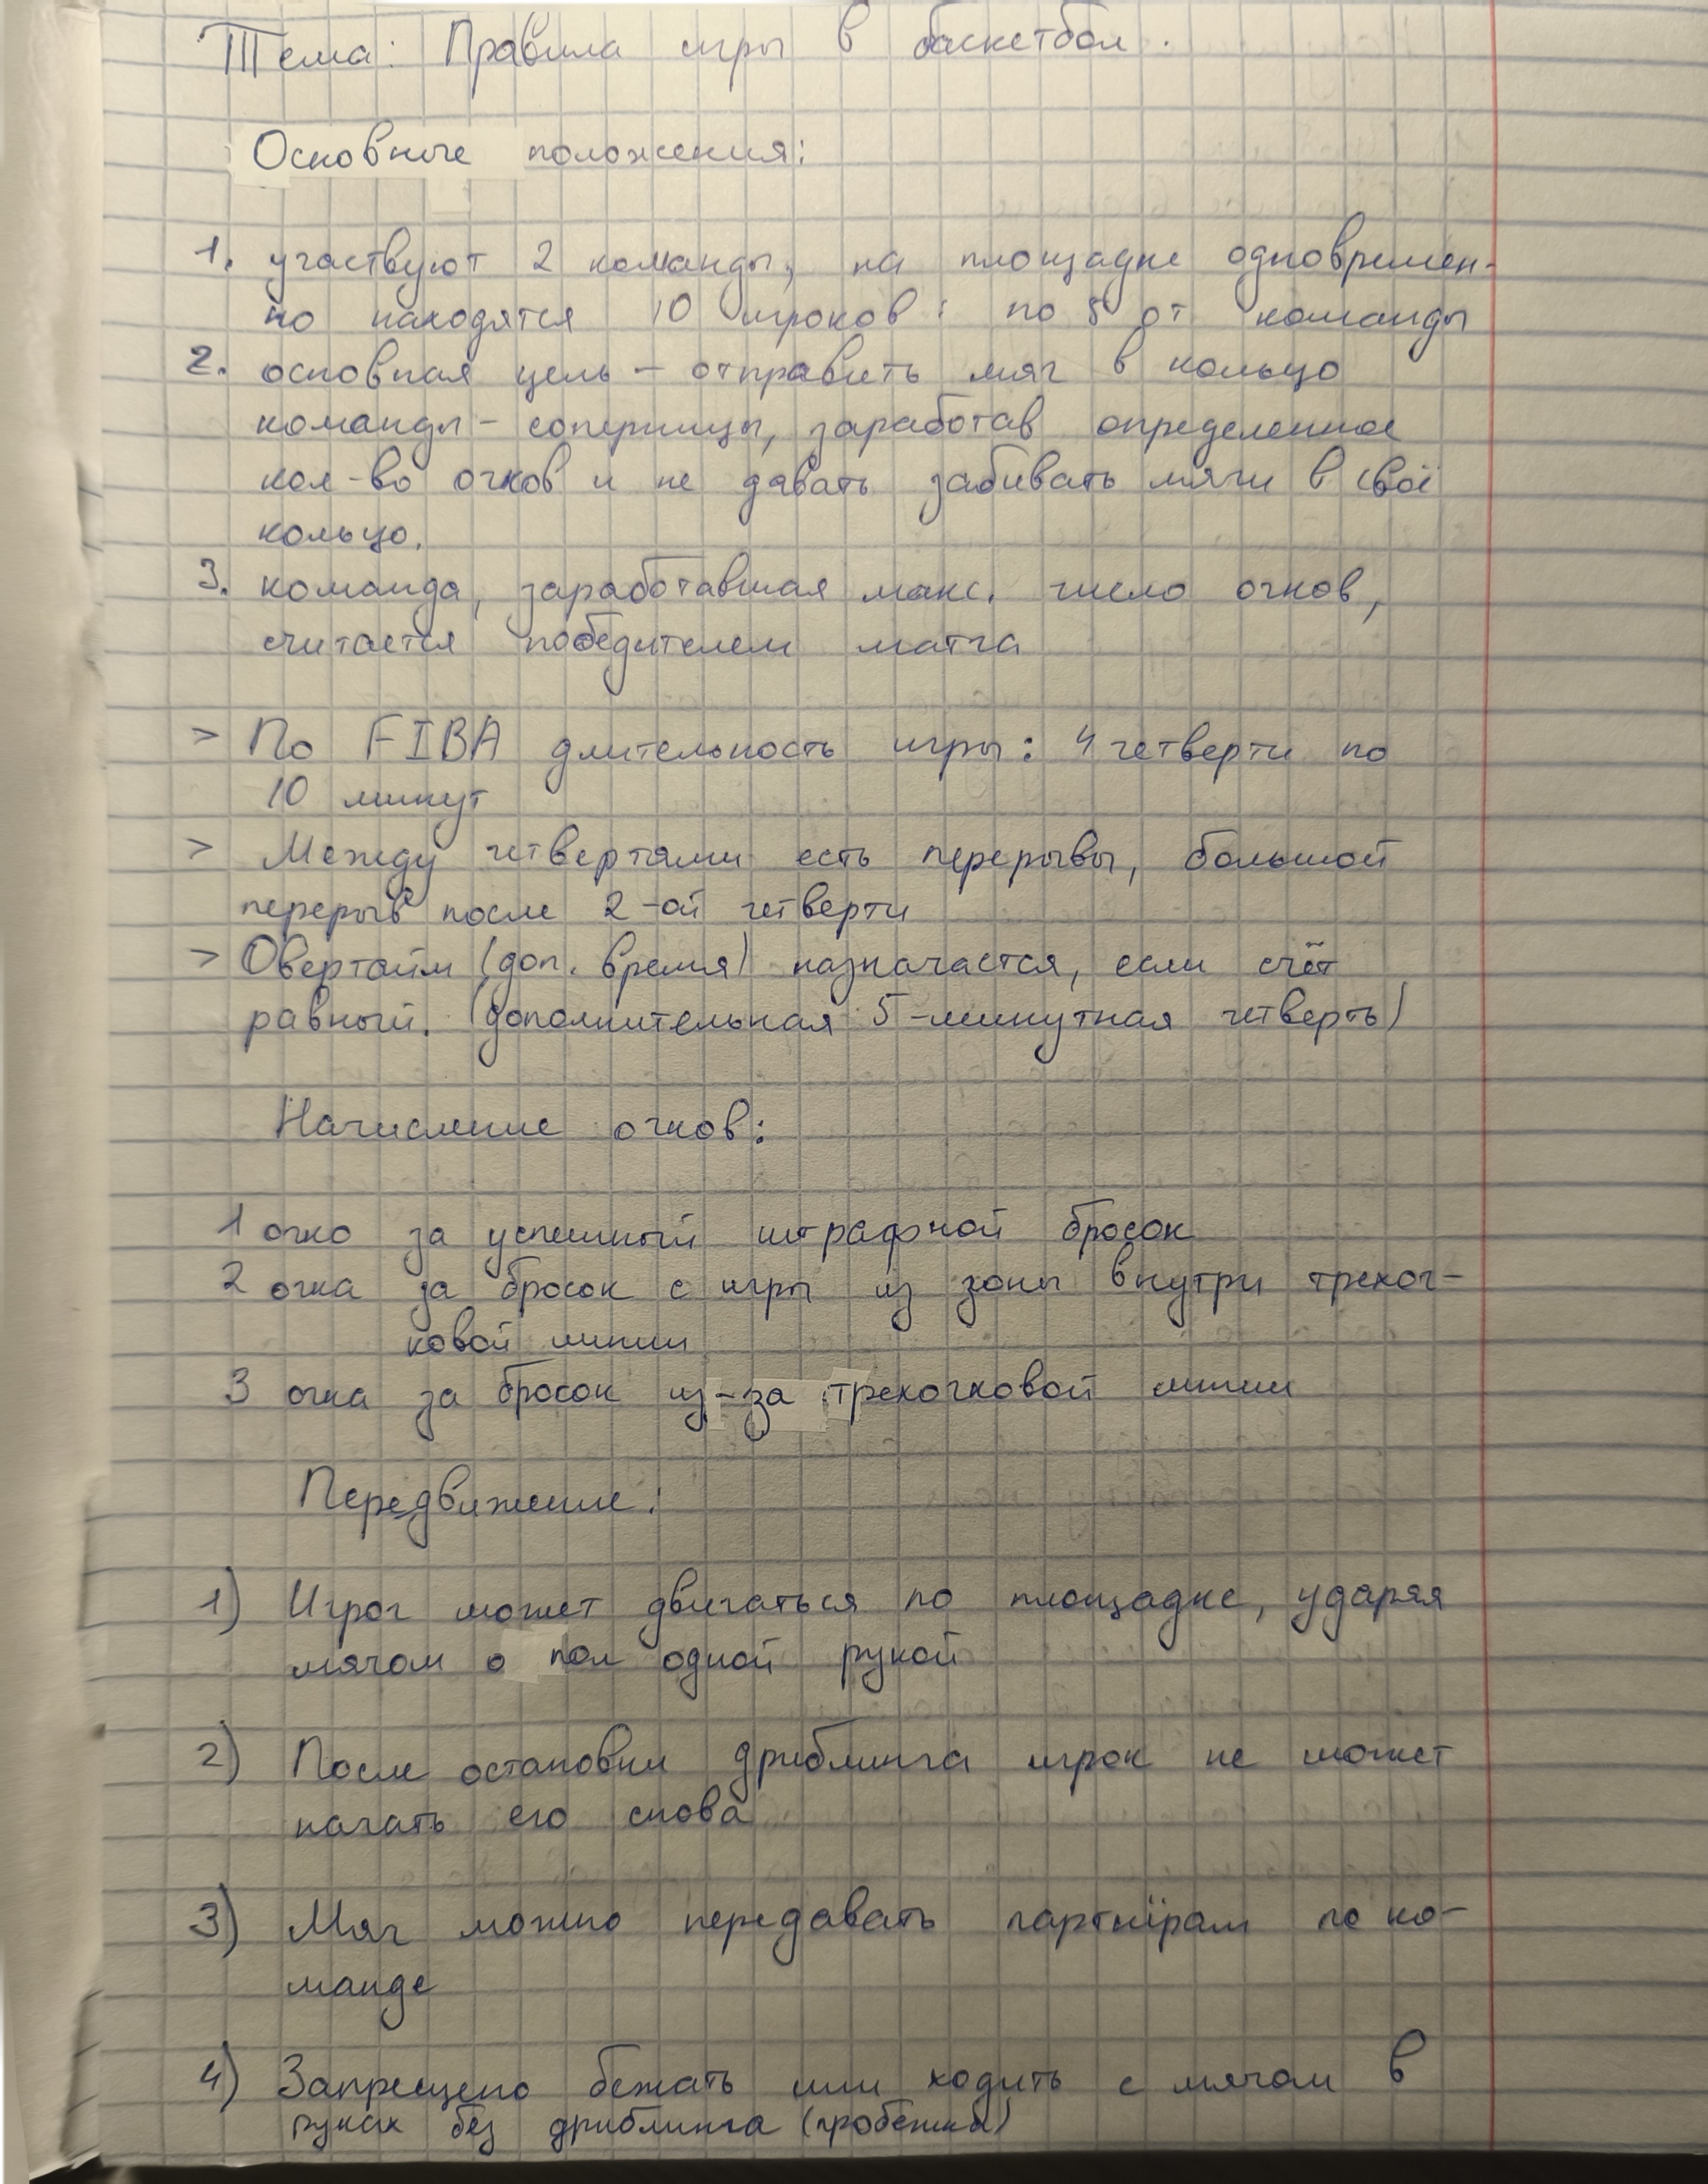 Тема: Правила игры в баскетбол.
Основные положения:
1. участвуют 2 команды, на площадке одновремен-
но находятся 10 игроков: по 5 от команды
2. основная цель - отправить мяч в кольцо
команды - соперницы, заработав определенное
кол-во очков и не давать забивать мячи в своё
кольцо.
3. команда, заработавшая макс. число очков,
считается победителем матча
> По FIBA длительность игры: 4 четверти по
10 минут
> Между четвертями есть перерывы, большой
перерыв после 2-ой четверти
> Овертайм (доп. время) назначается, если счёт
равный. (дополнительная 5-минутная четверть)
Начисление очков:
1 очко за успешный штрафной бросок
2 очка за бросок с игры из зоны внутри трехоч-
ковой линии
3 очка за бросок из-за трехочковой линии
Передвижение:
1) Игрог может двигаться по площадке, ударяя
мячом о пол одной рукой
2) После остановки дриблинга игрок не может
начать его снова
3) Мяч можно передавать партнёрам по ко-
манде
4) Запрещено бежать или ходить с мячом в
руках без дриблинга (пробежка)